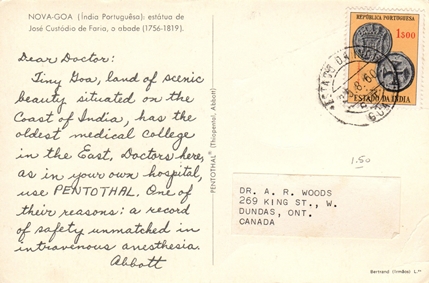 NOVA-GOA (Índia Portuguêsa): estátua de
José Custódio de Faria, o abade (1756-1819).
Dear Doctor:
Tiny Goa, land of scenic
beauty situated on the
Coast of India, has the
oldest medical college
in the East. Doctors here,
as in your own hospital,
use PENTOTHAL. One of
their reasons: a record
of safety unmatched in
intravenous anesthesia.
Abbott
PENTOTHAL® (Thiopental, Abbott)
REPÚBLICA PORTUGUESA
1$00
ESTADO DA INDIA
ESTADO DA
8.60
GOA
1.50
DR. A. R. WOODS
269 KING ST., W.
DUNDAS, ONT.
CANADA
Bertrand (Irmãos) L.da